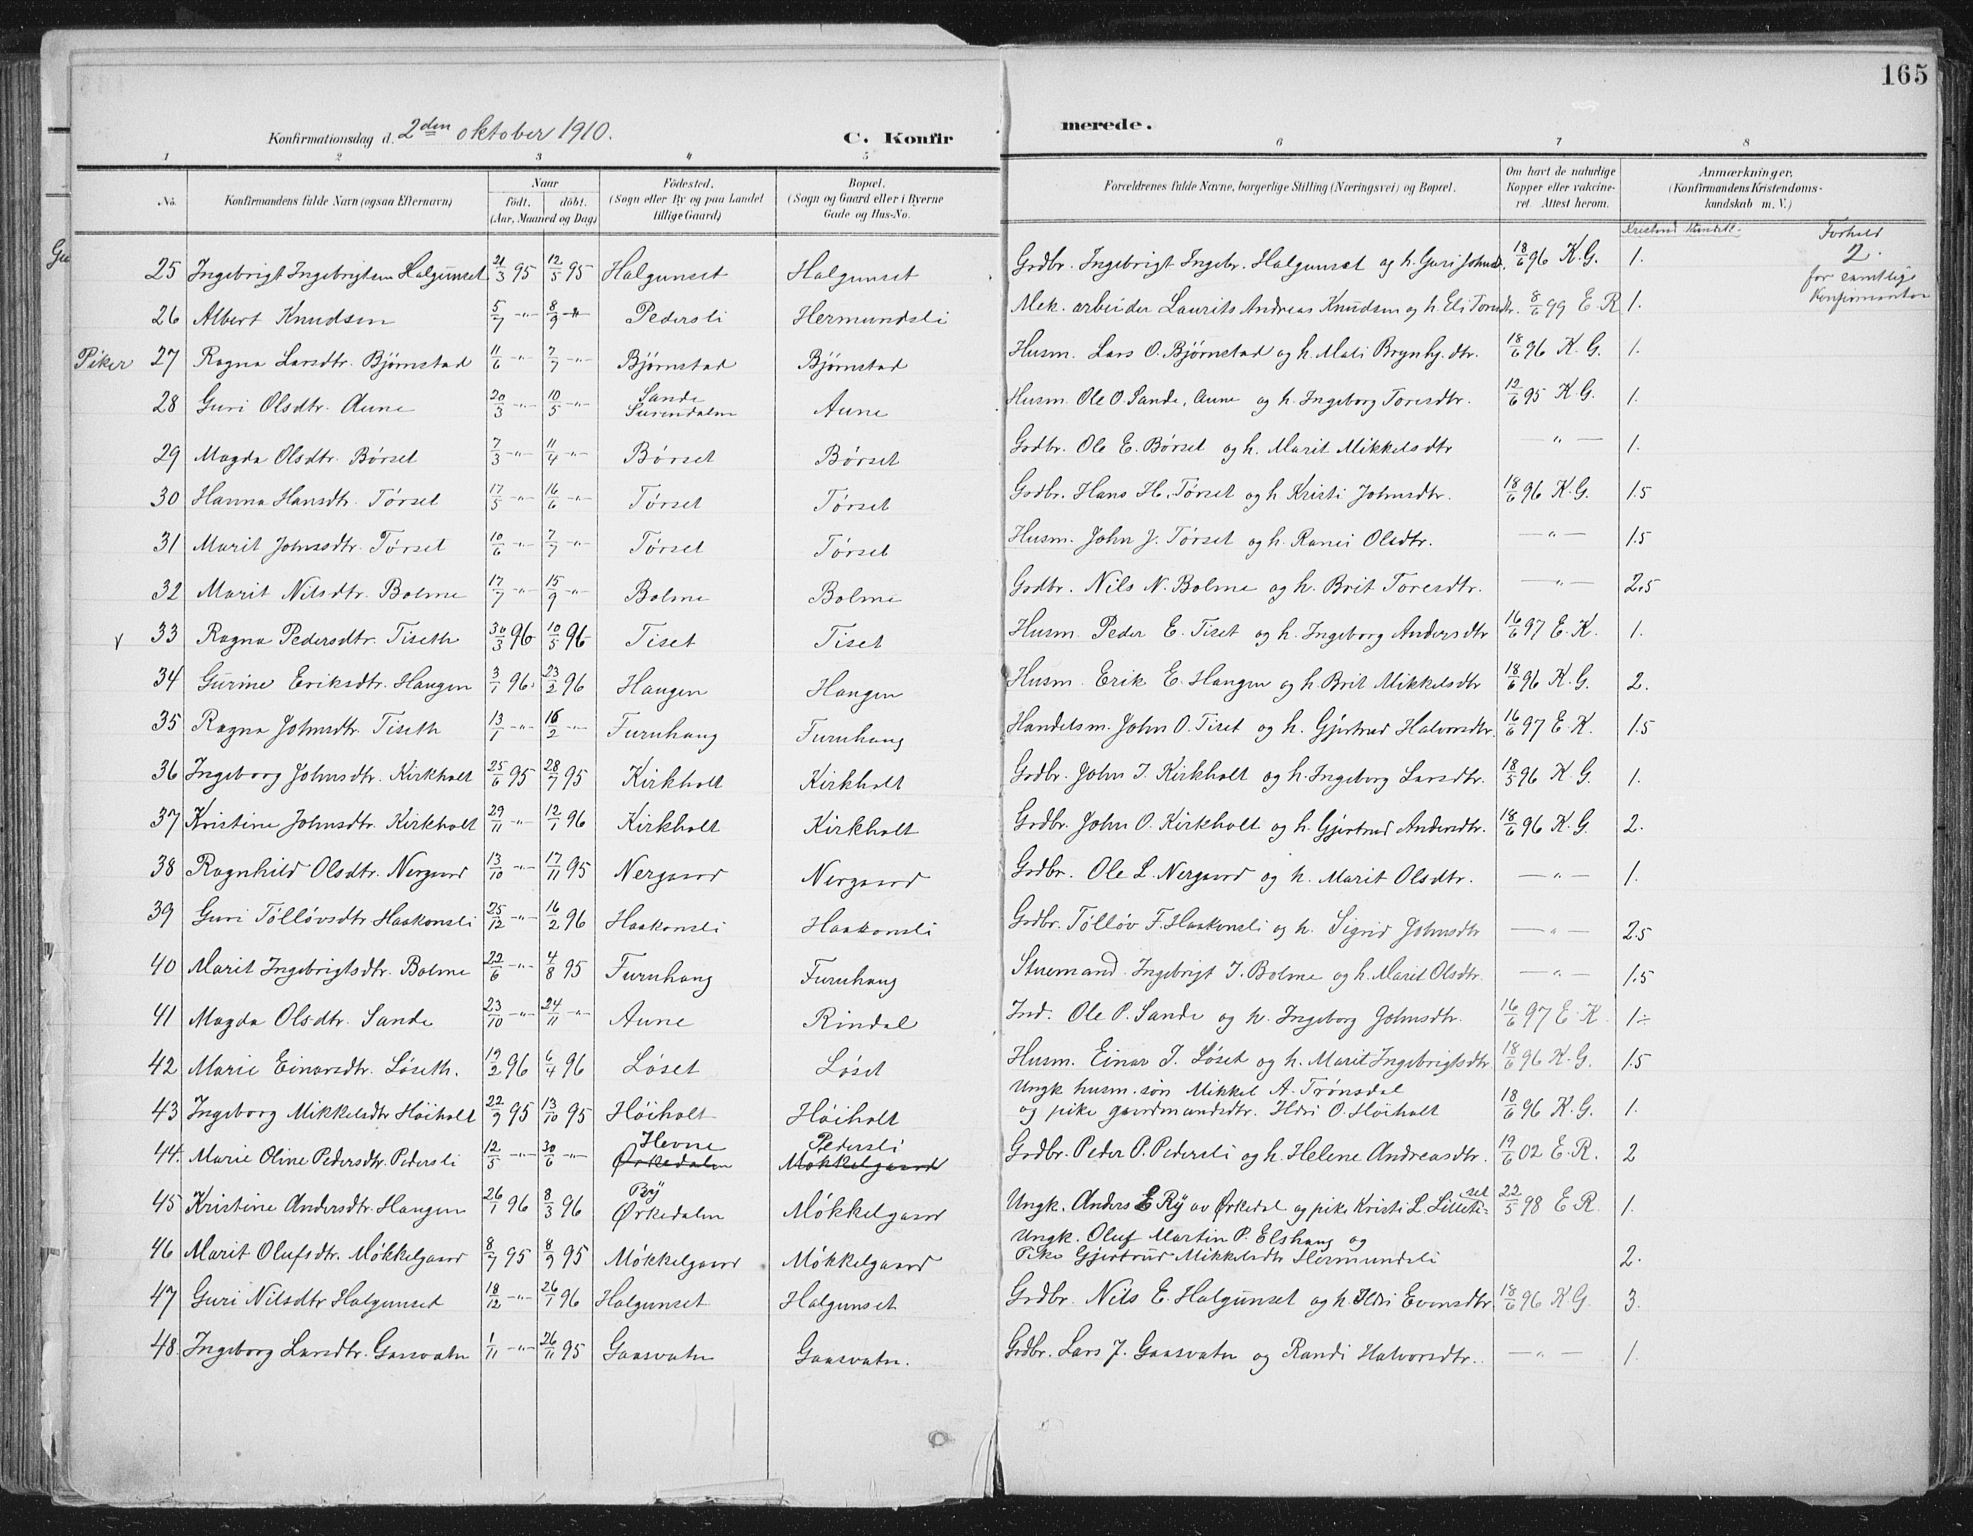 165
Konfirmationsdag d. 2den oktober 1910. C. Konfirmerede.
1 2 3 4 5 6 7 8
No. Konfirmandens fulde Navn (ogsaa Efternavn) Naar født. døbt. (Aar, Maaned og Dag) Fødested. (Sogn eller By og paa Landet tillige Gaard) Bopæl. (Sogn og Gaard eller i Byerne Gade og Hus-No. Forældrenes fulde Navne, borgerlige Stilling (Næringsvei) og Bopæl. Om havt de naturlige Kopper eller vakcineret. Attest herom. Anmærkninger. (Konfirmandens Kristendomskundskab m. V.)
Forhold 2. for samtlige Konfirmanter
25 Ingebrigt Ingebrigtsen Halgunset 21/3 95 12/5 95 Halgunset Halgunset Grdbr. Ingebrigt Ingebr. Halgunset og h. Guri Johnsd. 18/6 96 K. G. 1.
26 Albert Knudsen 5/7 -"- 8/9 -"- Pedersli Hermundsli Mek. arbeider Laurits Andreas Knudsen og h. Eli Toresdtr. 8/6 99 E R 1.
Piker 27 Ragna Larsdtr. Bjørnstad 11/6 -"- 7/7 -"- Bjørnstad Bjørnstad Husm. Lars O. Bjørnstad og h. Mali Brynhj. dtr. 18/6 96 K. G. 1.
28 Guri Olsdtr. Aune 20/3 -"- 10/5 -"- Sande Surendalen Aune Husm. Ole O. Sande, Aune og h. Ingeborg Toresdtr. 12/6 95 K. G. 1.
29 Magda Olsdtr. Børset 7/3 -"- 11/4 -"- Børset Børset Grdbr. Ole E. Børset og h. Marit Mikkelsdtr — " — 1.
30 Hanna Hansdtr. Tørset 17/5 -"- 16/6 -"- Tørset Tørset Grdbr. Hans H. Tørset og h. Kristi Johnsdtr. 18/6 96 K. G. 1.5
31 Marit Johnsdtr. Tørset 10/6 -"- 7/7 -"- Tørset Tørset Husm. John J. Tørset og h. Ranei Olsdtr. — " — 1.5
32 Marit Nilsdtr. Bolme 17/7 -"- 15/9 -"- Bolme Bolme Grdbr. Nils N. Bolme og h. Brit Toresdtr. — " — 2.5
v 33 Ragna Pedersdtr. Tiseth 30/3 96 10/5 96 Tiset Tiset Husm. Peder E. Tiset og h. Ingeborg Andersdtr 16/6 97 E. K. 1.
34 Gurine Eriksdtr. Haugen 3/1 96. 23/2 96 Haugen Haugen Husm. Erik E. Haugen og h. Brit Mikkelsdtr 18/6 96 K. G. 2.
35 Ragna Johnsdtr. Tiseth 13/1 -"- 16/2 -"- Furuhaug Furuhaug Handelsm. John O. Tiset og h. Gjertrud Halvorsdtr. 16/6 97 E. K. 1.5
36 Ingeborg Johnsdtr. Kirkholt 25/6 95 28/7 95 Kirkholt Kirkholt Grdbr. John I. Kirkholt og h. Ingeborg Larsdtr. 18/5 96 K. G. 1.
37 Kristine Johnsdtr. Kirkholt 29/11 -"- 12/1 96 Kirkholt Kirkholt Grdbr. John O. Kirkholt og h. Gjertrud Andersdtr. 18/6 96 K. G. 2.
38 Ragnhild Olsdtr. Nergaard 13/10 -"- 17/11 95 Nergaard Nergaard Grdbr. Ole L. Nergaard og h. Marit Olsdtr. — " — 1.
39 Guri Tølløvsdtr Haakonsli 25/12 -"- 16/2 96 Haakonsli Haakonsli Grdbr. Tølløv F. Haakonsli og h. Sigrid Johnsdtr — " — 2.5
40 Marit Ingebrigtsdtr. Bolme 22/6 -"- 4/8 95 Furuhaug Furuhaug Stuemand. Ingebrigt I. Bolme og h. Marit Olsdtr. — " — 1.5
41 Magda Olsdtr. Sande 23/10 -"- 24/11 -"- Aune Rindal Ind. Ole P. Sande og h. Ingeborg Johnsdtr. 16/6 97 E. K. 1÷
42 Marie Einarsdtr. Løseth. 19/2 96 6/4 96 Løset Løset Husm. Einar I. Løset og h. Marit Ingebrigtsdtr 18/6 96 K. G. 1.5
43 Ingeborg Mikkelsdtr Høiholt 22/9 95 13/10 95 Høiholt Høiholt Ungk. husm. søn Mikkel A. Trønsdal og pike gaardmandsdtr. Ildri O. Høiholt 18/6 96 K. G. 1.
44. Marie Oline Pedersdtr. Pedersli 12/5 -"- 30/6 -"- Hevne Ørkedalen Pedersli Møkkelgaard Grdbr. Peder P. Pedersli og h. Helene Andreasdtr. 19/6 02 E. R. 2
45 Kristine Andersdtr. Haugen 26/1 96 8/3 96 Ry Ørkedalen Møkkelgaard Ungk. Anders E Ry av Ørkedal og pike Kristi L. Lilletiset 22/5 98 E R. 1.
46 Marit Olufsdtr. Møkkelgaard 8/7 95 8/9 95 Møkkelgaard Møkkelgaard Ungk. Oluf Martin P. Elshaug og Pike Gjertrud Mikkelsdtr Hermundsli 2.
47 Guri Nilsdtr Halgunset 18/12 -"- 26/1 96 Halgunset Halgunset Grdbr. Nils E. Halgunset og h. Ildri Evensdtr 18/6 96 K G. 3.
48. Ingeborg Larsdtr. Gaasvatn 1/11 -"- 26/11 95 Gaasvatn Gaasvatn. Grdbr. Lars J. Gaasvatn og Randi Halvorsdtr. — " — 1.